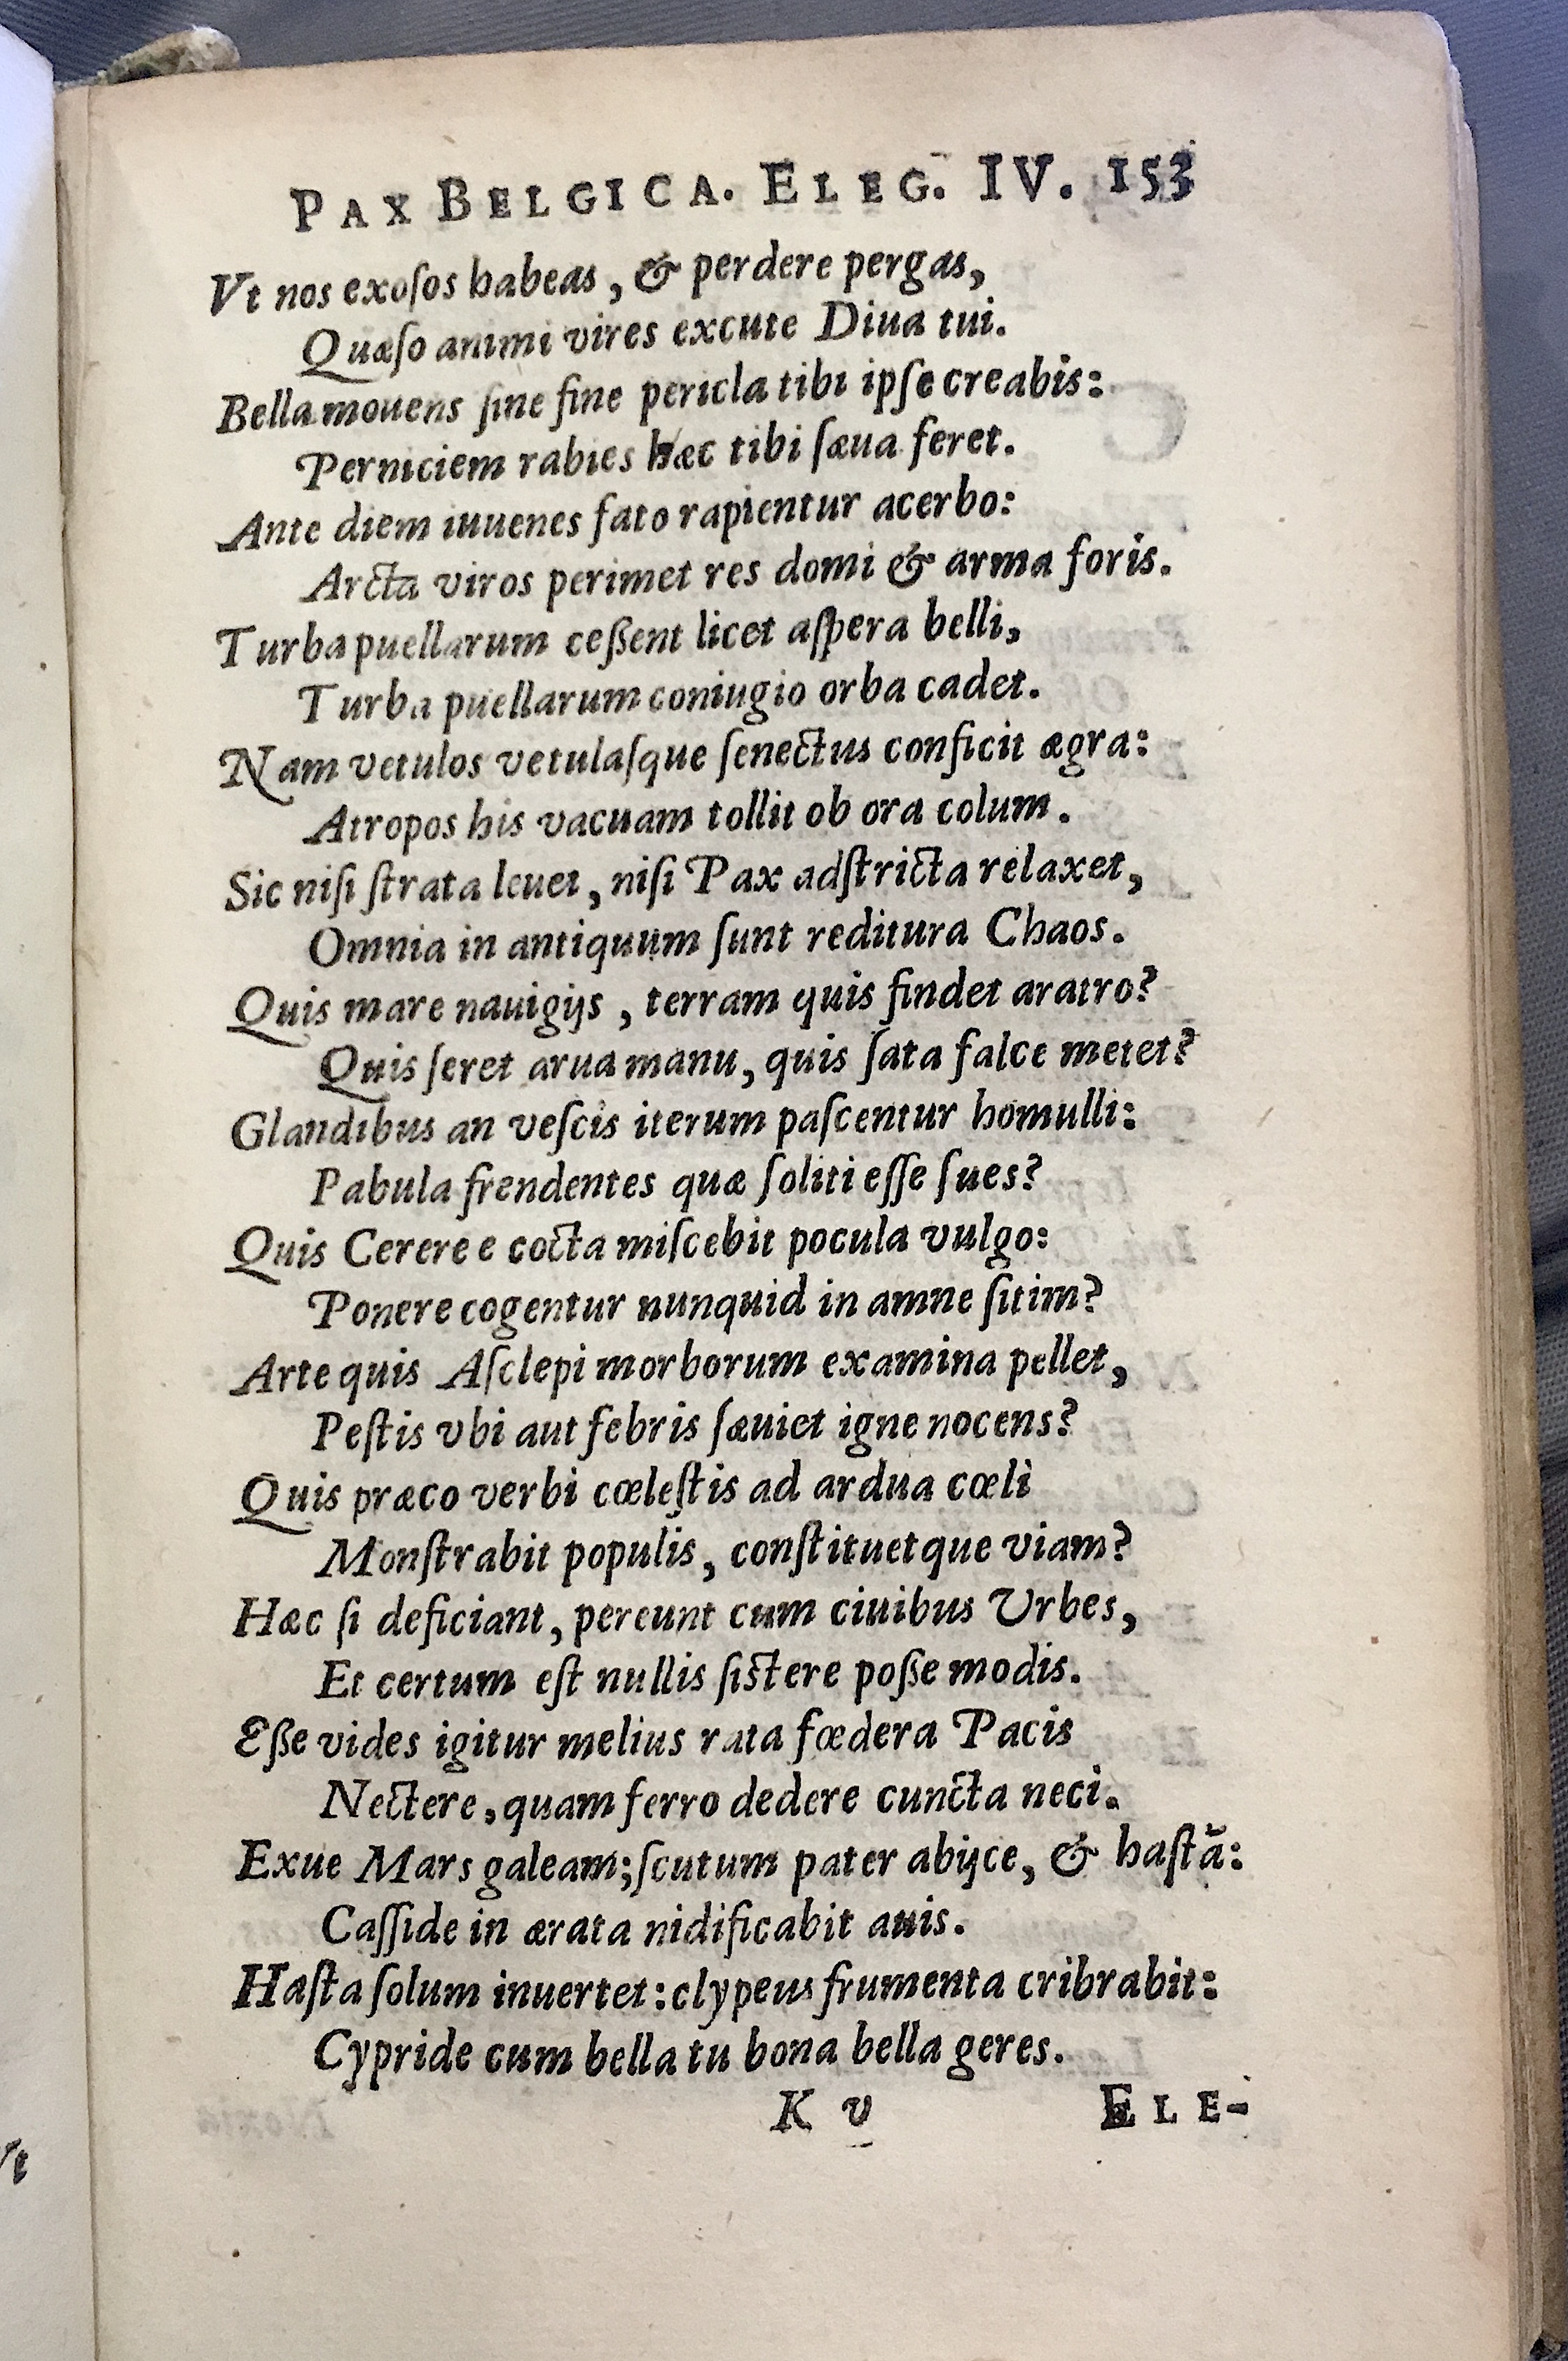 PAX BELGICA. ELEG. IV. 153
Vt nos exoſos habeas, & perdere pergas,
Quæſo animi vires excute Diua tui.
Bella mouens ſine fine pericla tibi ipſe creabis:
Perniciem rabies hæc tibi ſæua feret.
Ante diem iuuenes fato rapientur acerbo:
Arcta viros perimet res domi & arma foris.
Turba puellarum ceßent licet aſpera belli,
Turba puellarum coniugio orba cadet.
Nam vetulos vetulaſque ſenectus conficit ægra:
Atropos his vacuam tollit ob ora colum.
Sic niſi ſtrata leuet, niſi Pax adſtricta relaxet,
Omnia in antiquum ſunt reditura Chaos.
Quis mare nauigijs, terram quis findet aratro?
Quis ſeret arua manu, quis ſata falce metet?
Glandibus an veſcis iterum paſcentur homulli:
Pabula frendentes quæ ſoliti eſſe ſues?
Quis Cerere e cocta miſcebit pocula vulgo:
Ponere cogentur nunquid in amne ſitim?
Arte quis Aſclepi morborum examina pellet,
Peſtis vbi aut febris ſæuiet igne nocens?
Quis præco verbi cœleſtis ad ardua cœli
Monſtrabit populis, conſtituetque viam?
Hæc ſi deficiant, pereunt cum ciuibus Vrbes,
Et certum eſt nullis ſistere poße modis.
Eße vides igitur melius rata fœdera Pacis
Nectere, quam ferro dedere cuncta neci.
Exue Mars galeam; ſcutum pater abijce, & haſtā:
Caſſide in ærata nidificabit auis.
Haſta ſolum inuertet: clypeus frumenta cribrabit:
Cypride cum bella tu bona bella geres.
K v ELE-
Vt